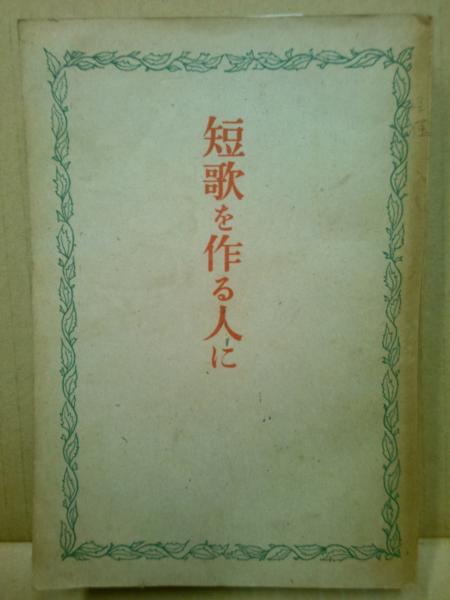 短歌を作る人に